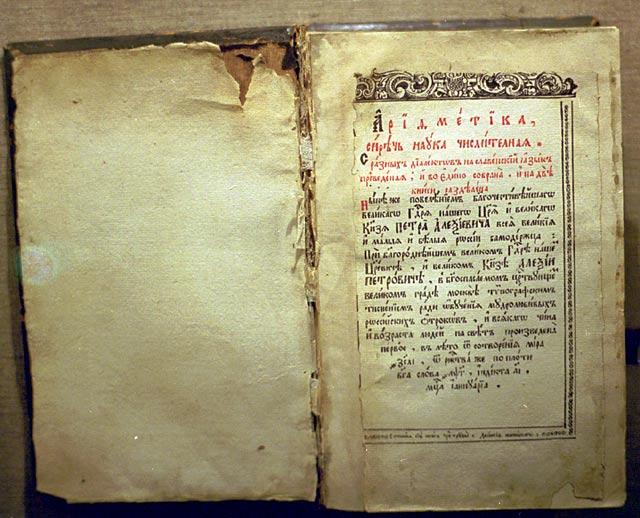 Арїѳме́тїка,
си́рѣчь наѹка числи́телная.
С разныхъ дїале́ктѡвъ на славе́нскїй ꙗзы́къ
преведеная, и҆ во є҆ди́но собрана̀, и҆ на двѣ̀
книги раздѣлена̀
Ны́нѣ же повелѣ́нїемъ благочестивѣ́йшагѡ
вели́кагѡ Гдⷭ҇рѧ на́шегѡ Цр҃ѧ̀ и҆ вели́кагѡ
Кнѕ҃ѧ ПЕТРА̀ А҆ЛЕѮі́ЕВИЧА всеѧ̀ вели́кїѧ
и҆ ма́лыѧ и҆ бѣ́лыѧ рѡссі́и самоде́ржца:
При благоро́днѣйшемъ вели́комъ Гдⷭ҇рѣ на́шемъ
Цр҃е́вичѣ, и҆ вели́комъ Кнѕ҃ѣ А҆ЛЕѮі́И
ПЕТРО́ВИЧѢ, в бг҃оспаса́емомъ црⷭ҇твꙋющемъ
вели́комъ гра́дѣ москвѣ̀ тѷпогра́фскимъ
тисне́нїемъ ра́ди ѡ҆бꙋче́нїѧ мꙋдролюби́выхъ
рѡссі́йскихъ ѻ҆́трокѡвъ, и҆ всѧ́кагѡ чи́на
и҆ во́зраста люде́й на свѣ́тъ произведена̀
пе́рвое, в лѣ́то ѿ сотворе́нїѧ мі́ра
҂зсаі, ѿ ржⷭ҇тва́ же по пло́ти
бг҃а сло́ва ҂аѱг, і҆ндїкта аі.
мцⷭ҇а і҆аннꙋа́рїа.